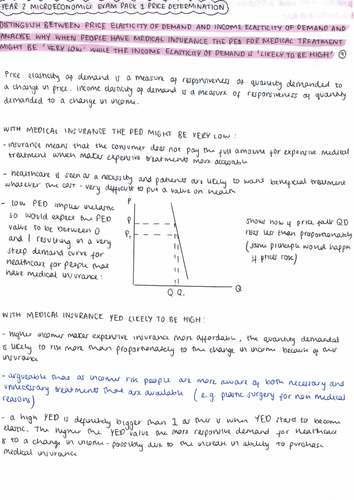 YEAR 2 MICROECONOMICS EXAM PACK 1 PRICE DETERMINATION
DISTINGUISH BETWEEN PRICE ELASTICITY OF DEMAND AND INCOME ELASTICITY OF DEMAND AND
ANALYSE WHY WHEN PEOPLE HAVE MEDICAL INSURANCE THE PED FOR MEDICAL TREATMENT
MIGHT BE 'VERY LOW' WHILE THE INCOME ELASTICITY OF DEMAND IS 'LIKELY TO BE HIGH'
Price elasticity of demand is a measure of responsiveness of quantity demanded to
a change in price. Income elasticity of demand is a measure of responsiveness of quantity
demanded to a change in income.
WITH MEDICAL INSURANCE THE PED MIGHT BE VERY LOW :
- insurance means that the consumer does not pay the full amount for expensive medical
treatment which makes expensive treatments more accessible
- healthcare is seen as a necessity and patients are likely to want beneficial treatment
whatever the cost - very difficult to put a value on health
- low PED implies inelastic
so would expect the PED
value to be between 0
and 1 resulting in a very
steep demand curve for
healthcare for people that
have medical insurance :
P
P
P₁
Q Q₁
Q
shows how if price falls QD
rises less than proportionately
(same principle would happen
if prices rose)
WITH MEDICAL INSURANCE YED LIKELY TO BE HIGH :
- higher incomes makes expensive insurance more affordable, the quantity demanded
is likely to rise more than proportionately to the change in income because of our
insurance
- argueable that as incomes rise people are more aware of both necessary and
unnecessary treatments that are available (e.g. plastic surgery for non medical
reasons)
- a high YED is definitely bigger than 1 as this is when YED starts to become
elastic. The higher the YED value the more responsive demand for healthcare
is to a change in income - possibly due to the increase in ability to purchase
medical insurance